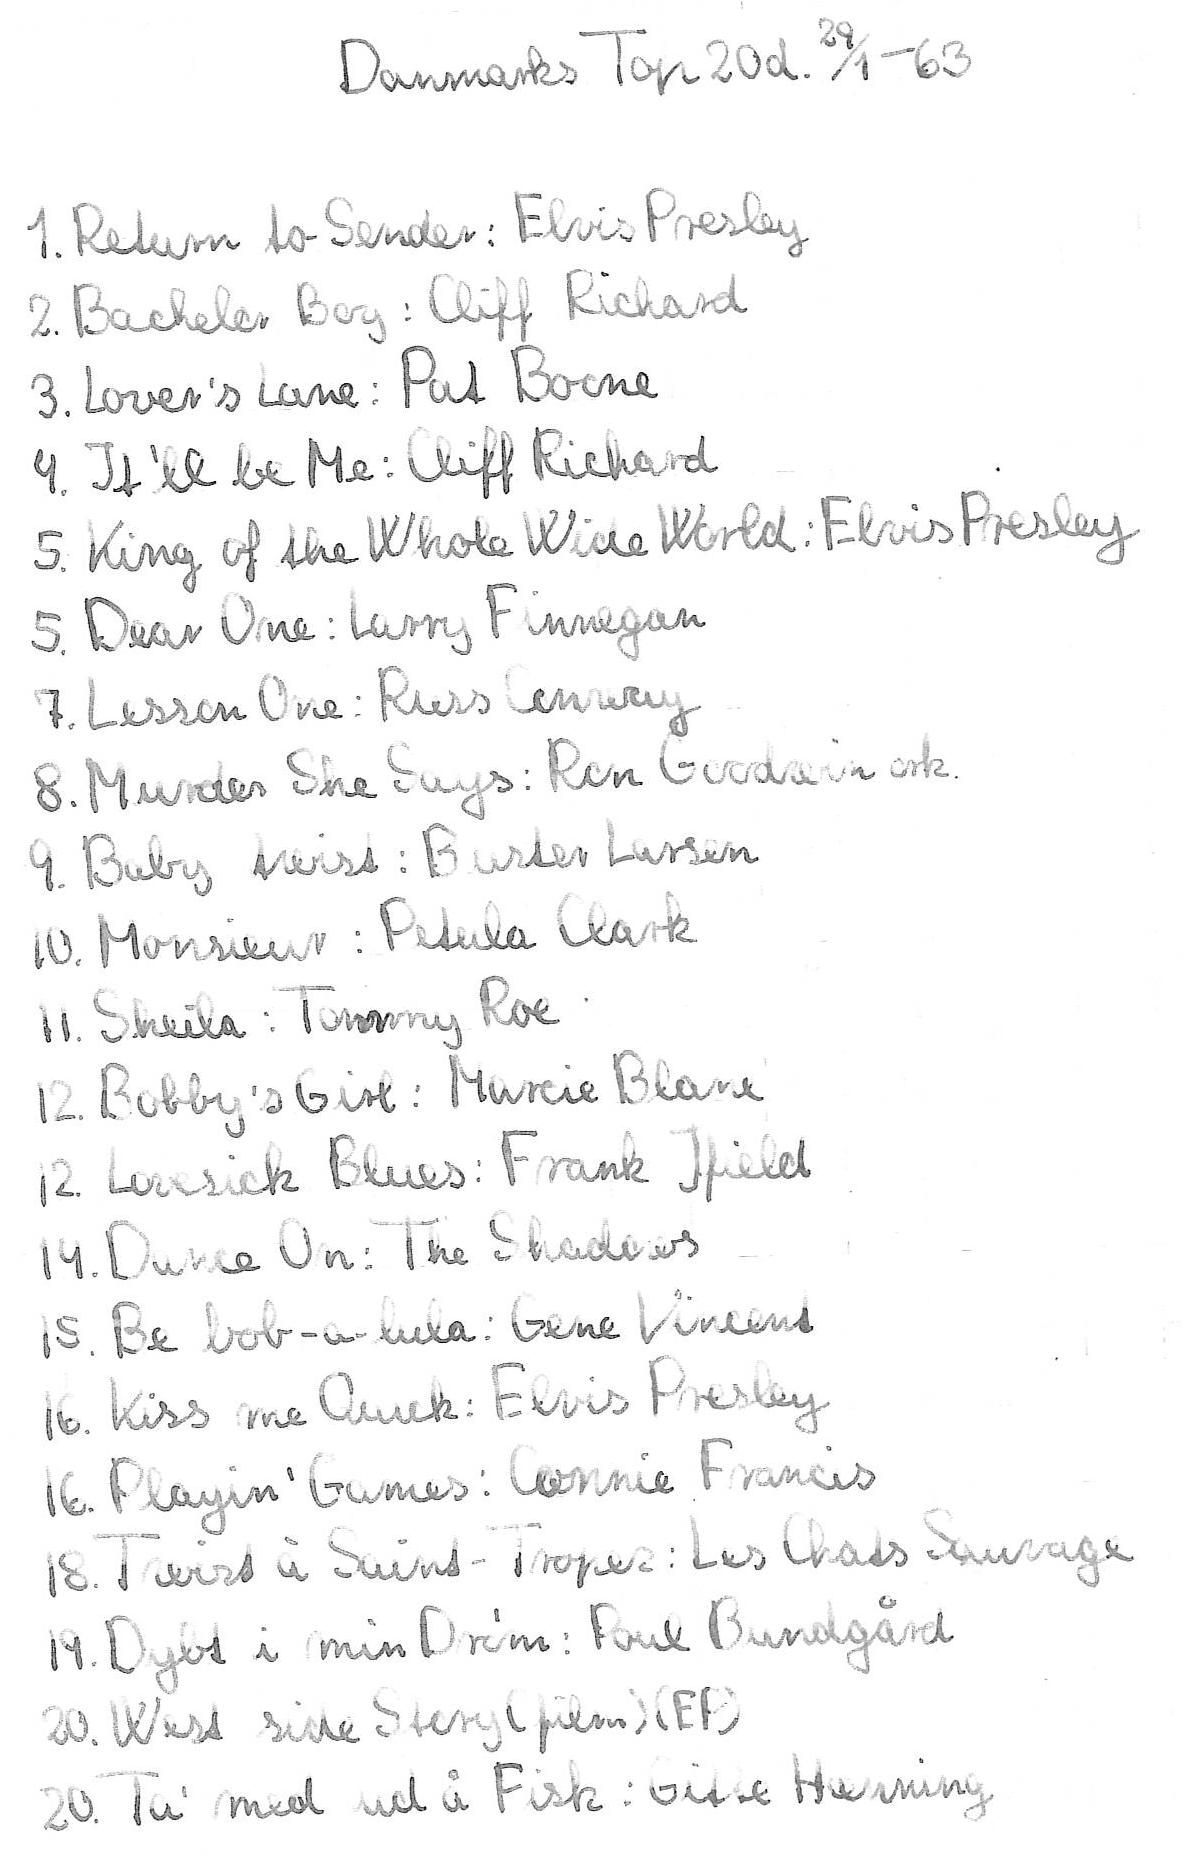 Danmarks Top 20 d. 29/1-63
1. Return to Sender: Elvis Presley
2. Bachelor Boy: Cliff Richard
3. Lover's Lane: Pat Boone
4. It'll be Me: Cliff Richard
5. King of the Whole Wide World: Elvis Presley
5. Dear One: Larry Finnegan
7. Lesson One: Russ Conway
8. Murder She Says: Ron Goodwin ork.
9. Baby twist: Buster Larsen
10. Monsieur: Petula Clark
11. Sheila: Tommy Roe
12. Bobby's Girl: Marcie Blane
12. Lovesick Blues: Frank Ifield
14. Dance On: The Shadows
15. Be bob-a-lula: Gene Vincent
16. Kiss me Quick: Elvis Presley
16. Playin' Games: Connie Francis
18. Twist à Saint-Tropez: Les Chats Sauvage
19. Dybt i min Drøm: Poul Bundgård
20. West side Story (film) (EP)
20. Ta' med ud å Fisk: Gitte Hænning